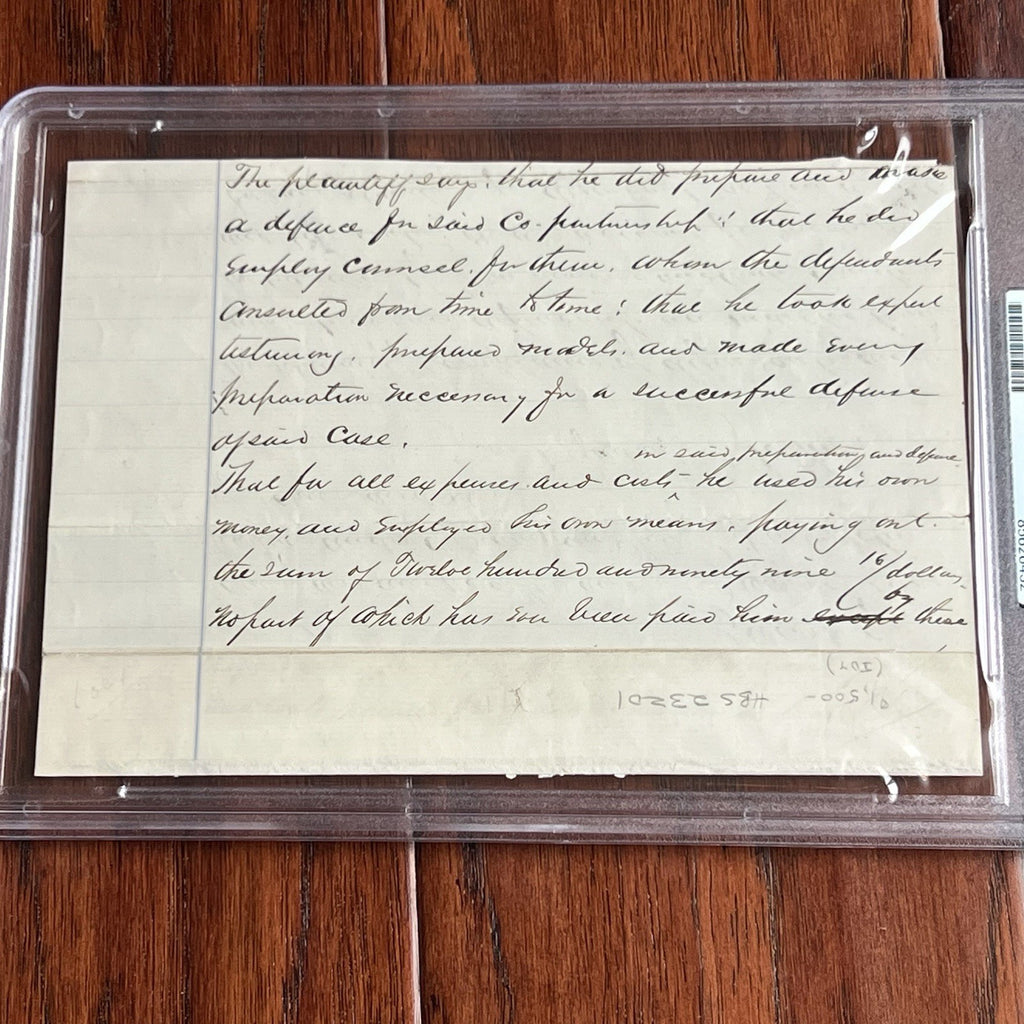 The plaintiff says: that he did prepare and make
a defence for said Co-partnership: that he did
Employ Counsel for them, whom the defendants
Consulted from time to time: that he took expert
testimony, prepared models, and made every
preparation neccessary for a successful defense
of said Case.
in said preparation and defense
That for all expenses and costs ^ he used his own
money, and Employed his own means, paying out
the sum of Twelve hundred and ninety nine 16/ dollars,
by
No part of which has ever been paid him except these
(IDY)
1,500-
HBS 23201